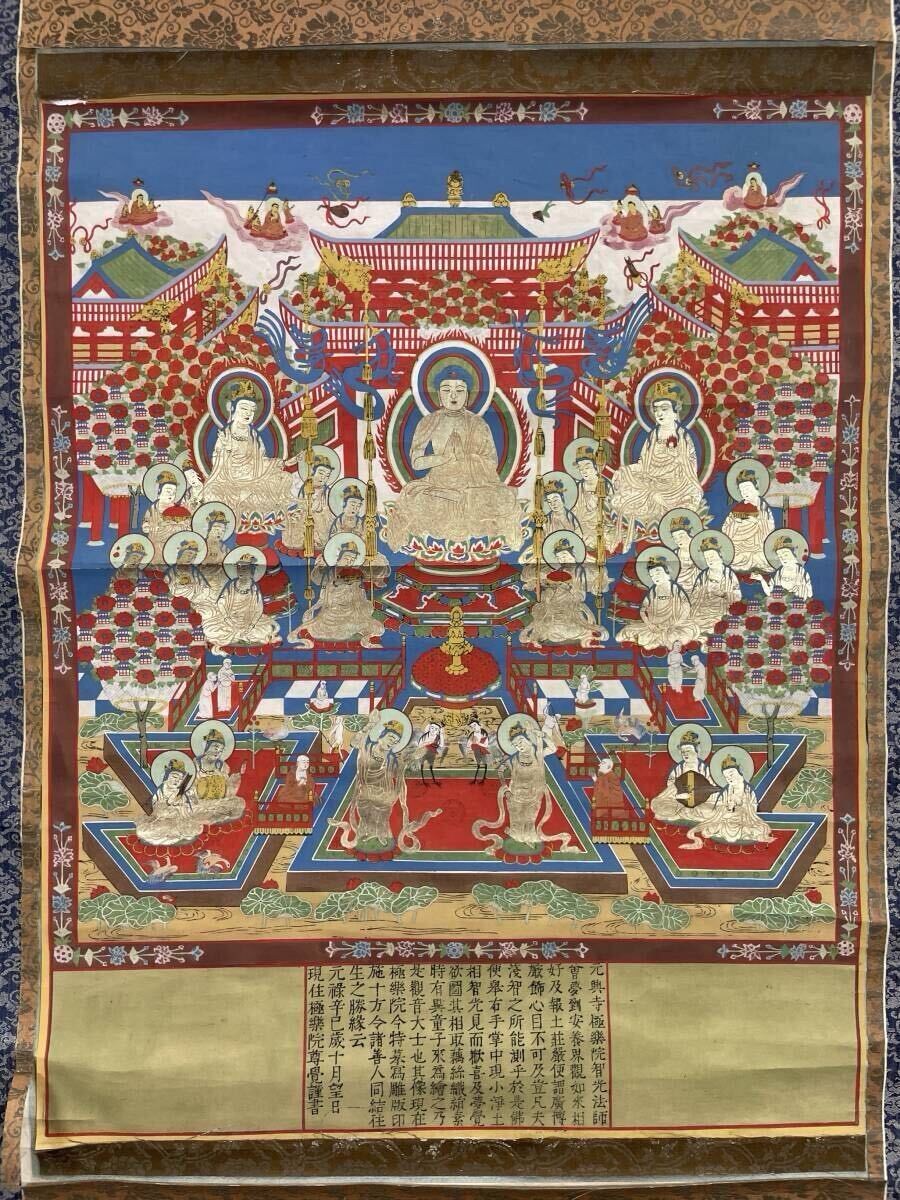 元興寺極樂院智光法師
曽夢到安養界觀如來相
好及報土莊嚴便謂廣博
嚴飾心目不可及豈凡夫
淺智之所能測乎於是佛
便舉右手掌中現小淨土
相智光見而歡喜及夢覺
欲圖其相取藕絲織絹素
時有異童子來為繪之乃
是觀音大士也其像現在
極樂院今特摹寫雕版印
施十方令諸善人同結往
生之勝緣云
元祿辛巳歲十月望日
現住極樂院尊覺謹書